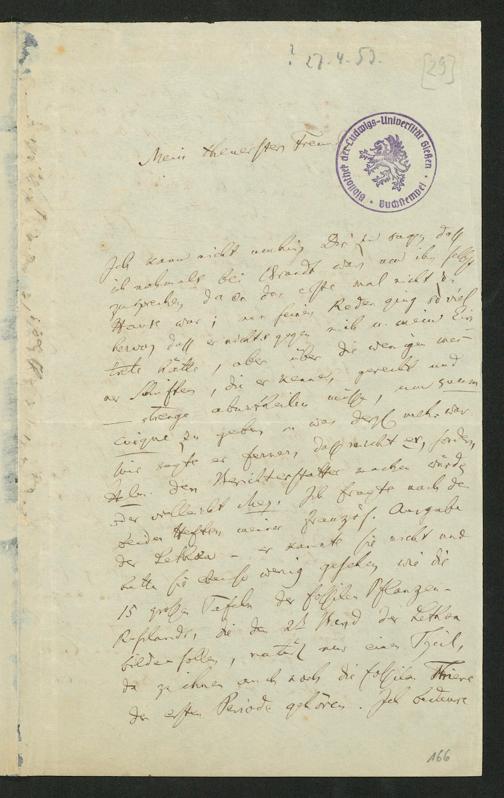 ? 27.4.53.
[29]
Mein theuerster Freund
Bibliothek der Ludwigs-Universität Gießen
Buchstempel
Ich kann nicht umhin Dir zu sagen, daß
ich nochmals bei Brandt war um ihn selbst
zu sprechen, da er das erste mal nicht zu
Hause war; aus seinen Reden ging so viel
hervor, daß er nichts gegen mich u. meine Ein
tritt hätte, aber über die wenigen mei
ner Schriften, die er kenne, gerecht und
strenge aburtheilen müsse, um suum
cuique zu geben u. was mehr war
Mir sagte er ferner, daß nicht er, sondern
den Berichterstatter machen würde
oder vielleicht Mey. Ich fragte nach den
beiden Heften meiner französ. Ausgabe
der Lethaea – er kannte sie nicht und
hatte sie ebenso wenig gesehen wie die
15 großen Tafeln der fossilen Pflanzen
Rußlands, die den 2t Band der Lethaea
bilden sollen, natürl nur einen Theil,
da zu ihnen auch noch die fossilen Thiere
der ersten Periode gehören. Ich bedaure
166